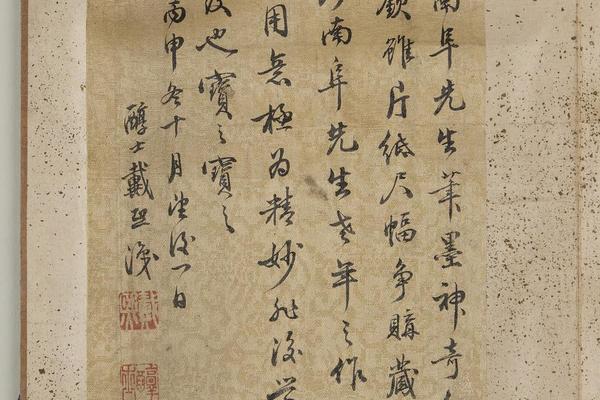 南阜先生筆墨神奇
欽雖片紙尺幅争購藏
南阜先生老年之作
用意極為精妙非後学
也寶之寶之
丙申冬十月望後一日
醇士戴熙識
戴熙
醇士